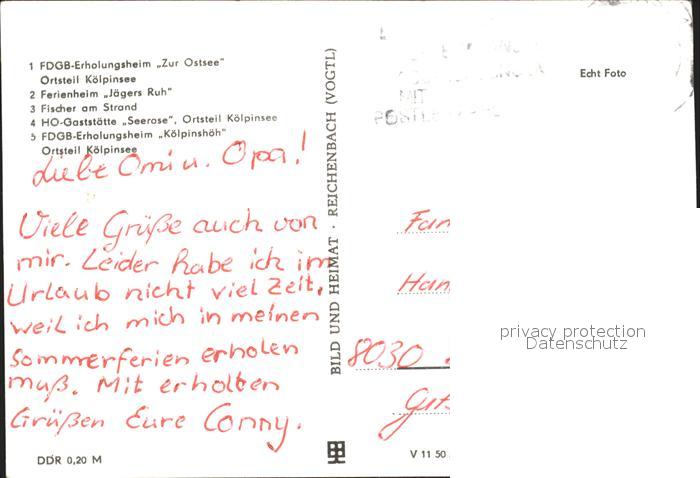 1 FDGB-Erholungsheim „Zur Ostsee"
Ortsteil Kölpinsee
2 Ferienheim „Jägers Ruh"
3 Fischer am Strand
4 HO-Gaststätte „Seerose", Ortsteil Kölpinsee
5 FDGB-Erholungsheim „Kölpinshöh"
Ortsteil Kölpinsee
Liebe Omi u. Opa!
Viele Grüße auch von
mir. Leider habe ich im
Urlaub nicht viel Zeit,
weil ich mich in meinen
Sommerferien erholen
muß. Mit erholten
Grüßen Eure Conny.
DDR 0,20 M
BILD UND HEIMAT · REICHENBACH (VOGTL)
Echt Foto
MIT
Fam
8030
V 11 50
privacy protection
Datenschutz